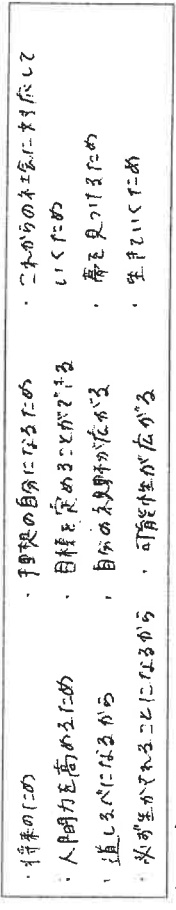 ・将来のため
・人間力を高めるため
・道しるべになるから
・必ず生かされることになるから
・理想の自分になるため
・目標を定めることができる
・自分の視野が広がる
・可能性が広がる
・これからの社会に対応して
いくため
・夢を見つけるため
・生きていくため